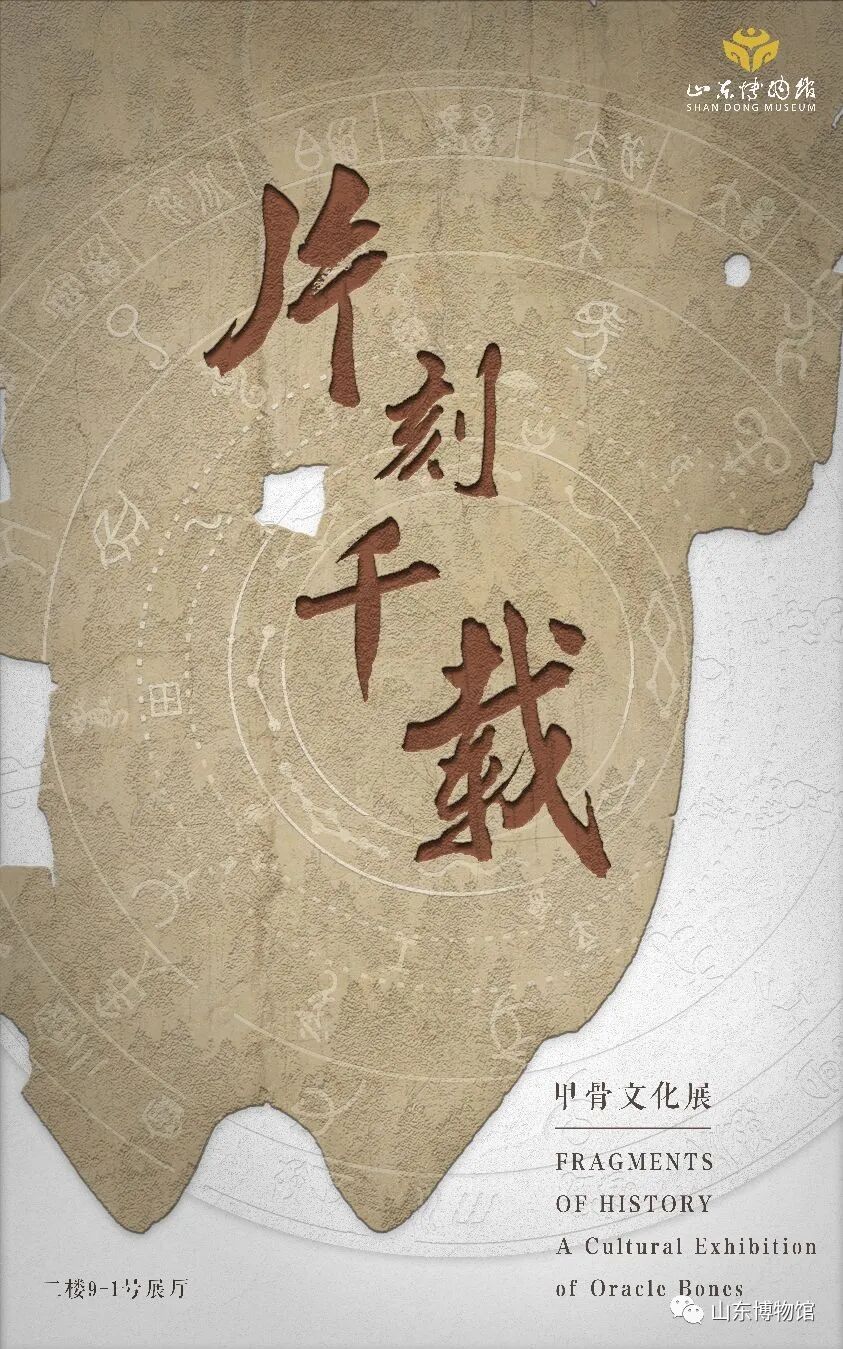 山东博物馆
SHAN DONG MUSEUM
片刻千载
甲骨文化展
FRAGMENTS
OF HISTORY
A Cultural Exhibition
of Oracle Bones
二楼9-1号展厅
山东博物馆